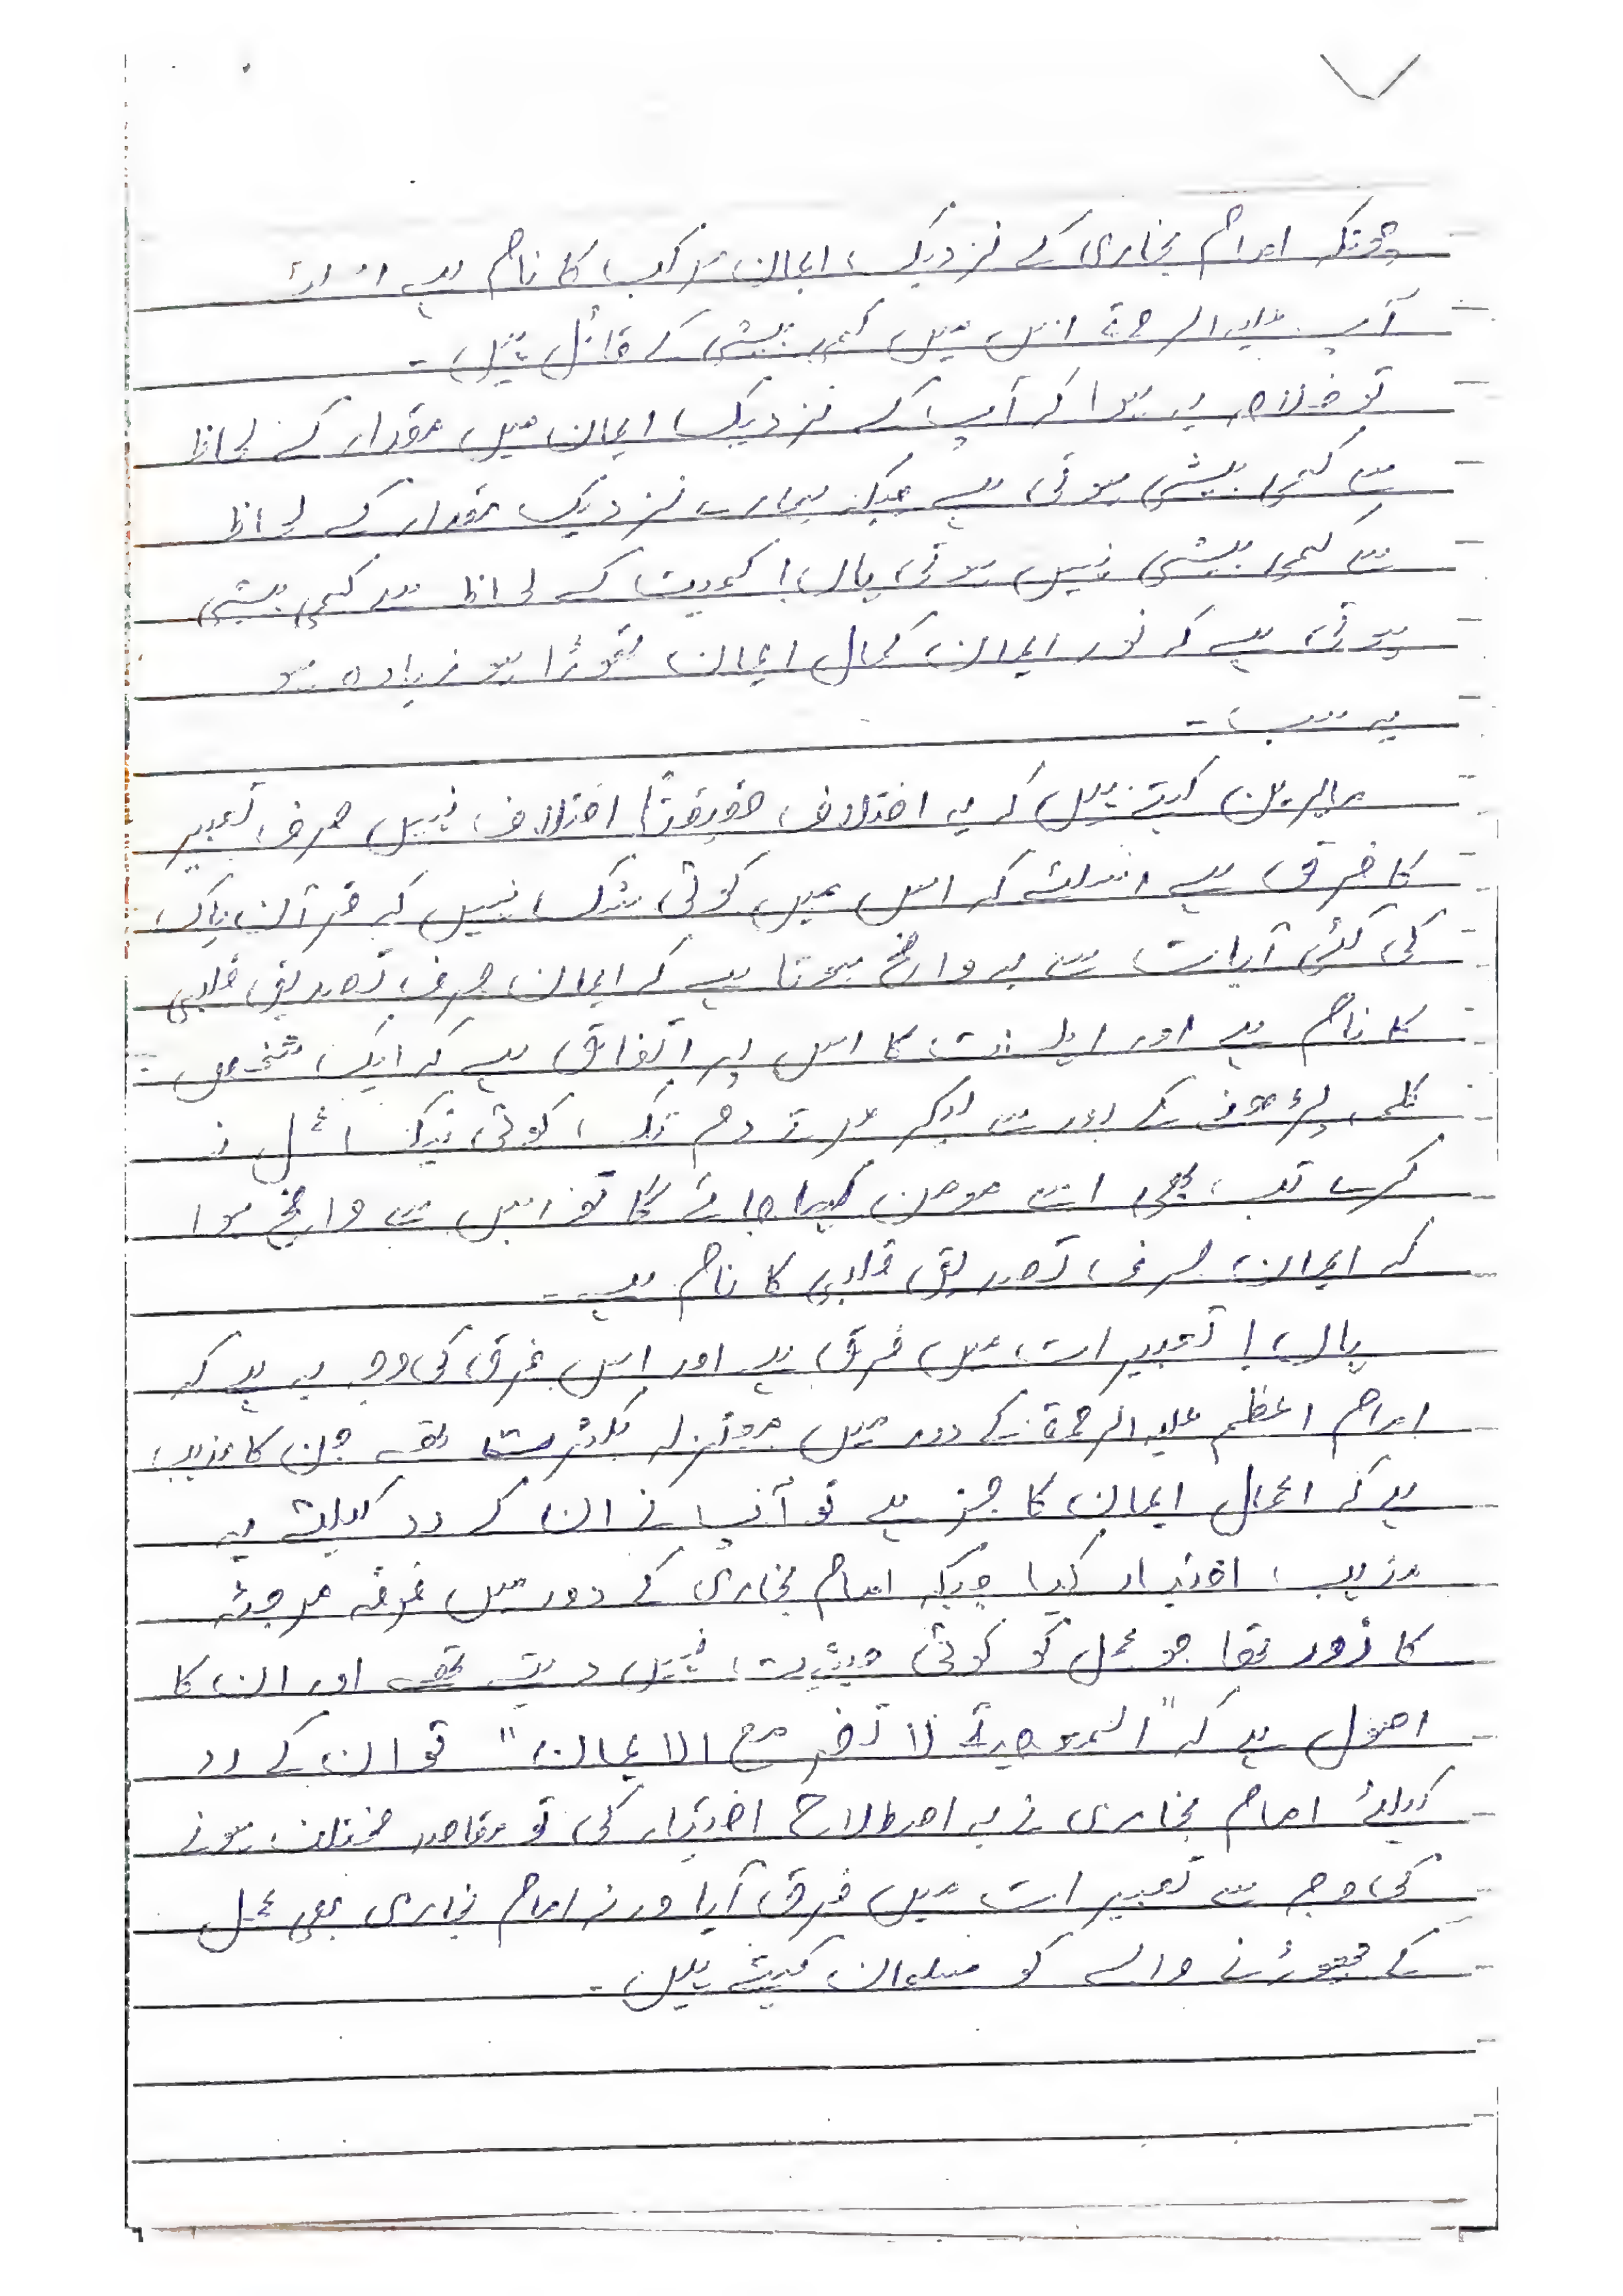 چونکہ امام بخاری کے نزدیک ایمان مرکب کا نام ہے اس لئے
آپ علیہ الرحمۃ اس میں کمی بیشی کے قائل ہیں۔
تو خلاصہ یہ ہوا کہ آپ کے نزدیک ایمان میں مقدار کے لحاظ
سے کمی بیشی ہوتی ہے جبکہ ہمارے نزدیک مقدار کے لحاظ
سے کمی بیشی نہیں ہوتی ہاں! کیفیت کے لحاظ سے کمی بیشی
ہوتی ہے کہ نور ایمان کمال ایمان تھوڑا ہو زیادہ ہو
یہ سب۔
ماہرین کہتے ہیں کہ یہ اختلاف حقیقتاً اختلاف نہیں صرف تعبیر
کا فرق ہے اسلئے کہ اس میں کوئی شک نہیں کہ قرآن پاک
کی کئی آیات سے یہ واضح ہوتا ہے کہ ایمان صرف تصدیق قلبی
کا نام ہے اور اہلسنت کا اس پر اتفاق ہے کہ ایک شخص
کلمہ پڑھنے کے بعد سے لیکر مرتے دم تک کوئی نیک عمل نہ
کرے تب بھی اسے مومن کہا جائے گا تو اس سے واضح ہوا
کہ ایمان صرف تصدیق قلبی کا نام ہے۔
ہاں! تعبیرات میں فرق ہے اور اس فرق کی وجہ یہ ہے کہ
امام اعظم علیہ الرحمۃ کے دور میں معتزلہ بکثرت تھے جن کا مذہب
ہے کہ اعمال ایمان کا جز ہے تو آپ نے ان کے رد کیلئے یہ
مذہب اختیار کیا جبکہ امام بخاری کے دور میں فرقہ مرجئہ
کا زور تھا جو عمل کو کوئی حیثیت نہیں دیتے تھے اور ان کا
اصول ہے کہ "المعصیۃ لا تضر مع الایمان" تو ان کے رد
کیلئے امام بخاری نے یہ اصطلاح اختیار کی تو مقاصد مختلف ہونے
کی وجہ سے تعبیرات میں فرق آیا ورنہ امام بخاری بھی عمل
کے چھوڑنے والے کو مسلمان کہتے ہیں۔